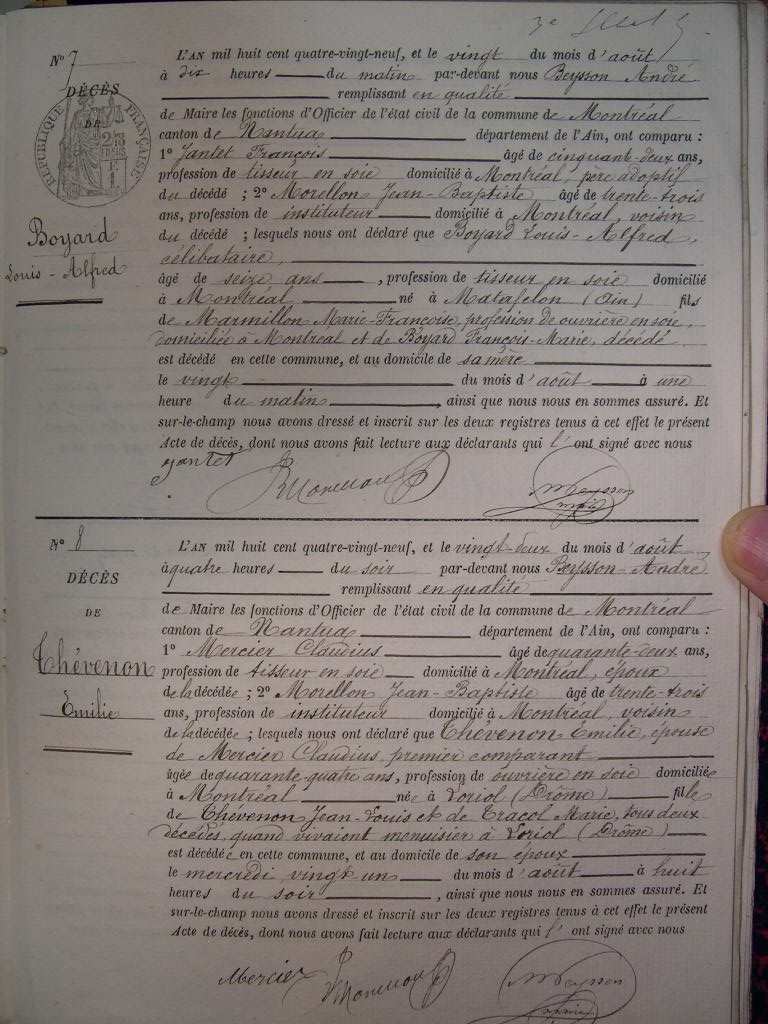 3e
N° 7
DÉCÈS
DE
RÉPUBLIQUE FRANÇAISE
Boyard
Louis-Alfred
L'AN mil huit cent quatre-vingt-neuf, et le vingt du mois d'août
à dix heures du matin par-devant nous Beysson André
remplissant en qualité
de Maire les fonctions d'Officier de l'état civil de la commune de Montréal
canton de Nantua département de l'Ain, ont comparu :
1° Jantet François âgé de cinquante-deux ans,
profession de tisseur en soie domicilié à Montréal, père adoptif
du décédé ; 2° Morellon Jean-Baptiste âgé de trente-trois
ans, profession de instituteur domicilié à Montréal, voisin
du décédé ; lesquels nous ont déclaré que Boyard Louis-Alfred,
célibataire,
âgé de seize ans, profession de tisseur en soie domicilié
à Montréal, né à Matafelon (Ain) fils
de Marmillon Marie-Françoise, profession de ouvrière en soie,
domiciliée à Montréal et de Boyard François-Marie, décédé
est décédé en cette commune, et au domicile de sa mère
le vingt du mois d'août à une
heure du matin, ainsi que nous nous en sommes assuré. Et
sur-le-champ nous avons dressé et inscrit sur les deux registres tenus à cet effet le présent
Acte de décès, dont nous avons fait lecture aux déclarants qui l'ont signé avec nous
jantet Morellon Beysson
N° 8
DÉCÈS
DE
Thévenon
Émilie
L'AN mil huit cent quatre-vingt-neuf, et le vingt-deux du mois d'août
à quatre heures du soir par-devant nous Beysson-André
remplissant en qualité
de Maire les fonctions d'Officier de l'état civil de la commune de Montréal
canton de Nantua département de l'Ain, ont comparu :
1° Mercier Claudius âgé de quarante-deux ans,
profession de tisseur en soie domicilié à Montréal, époux
de la décédée ; 2° Morellon Jean-Baptiste âgé de trente-trois
ans, profession de instituteur domicilié à Montréal, voisin
de la décédée ; lesquels nous ont déclaré que Thévenon Émilie, épouse
de Mercier Claudius, premier comparant
âgée de quarante-quatre ans, profession de ouvrière en soie domiciliée
à Montréal née à Loriol (Drôme) fille
de Thévenon Jean-Louis et de Tracol Marie, tous deux
décédés, quand vivaient menuisier à Loriol (Drôme)
est décédée en cette commune, et au domicile de son époux
le mercredi vingt un du mois d'août à huit
heures du soir, ainsi que nous nous en sommes assuré. Et
sur-le-champ nous avons dressé et inscrit sur les deux registres tenus à cet effet le présent
Acte de décès, dont nous avons fait lecture aux déclarants qui l'ont signé avec nous
Mercier Morellon Beysson